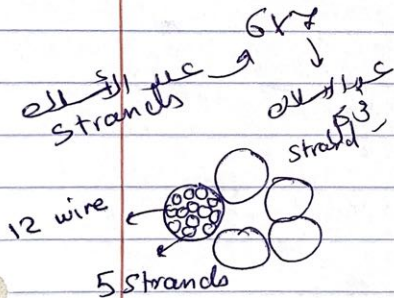 6x7
عدد الأسلاك
strands
عدد الاسلاك
strand
12 wire
5 strands